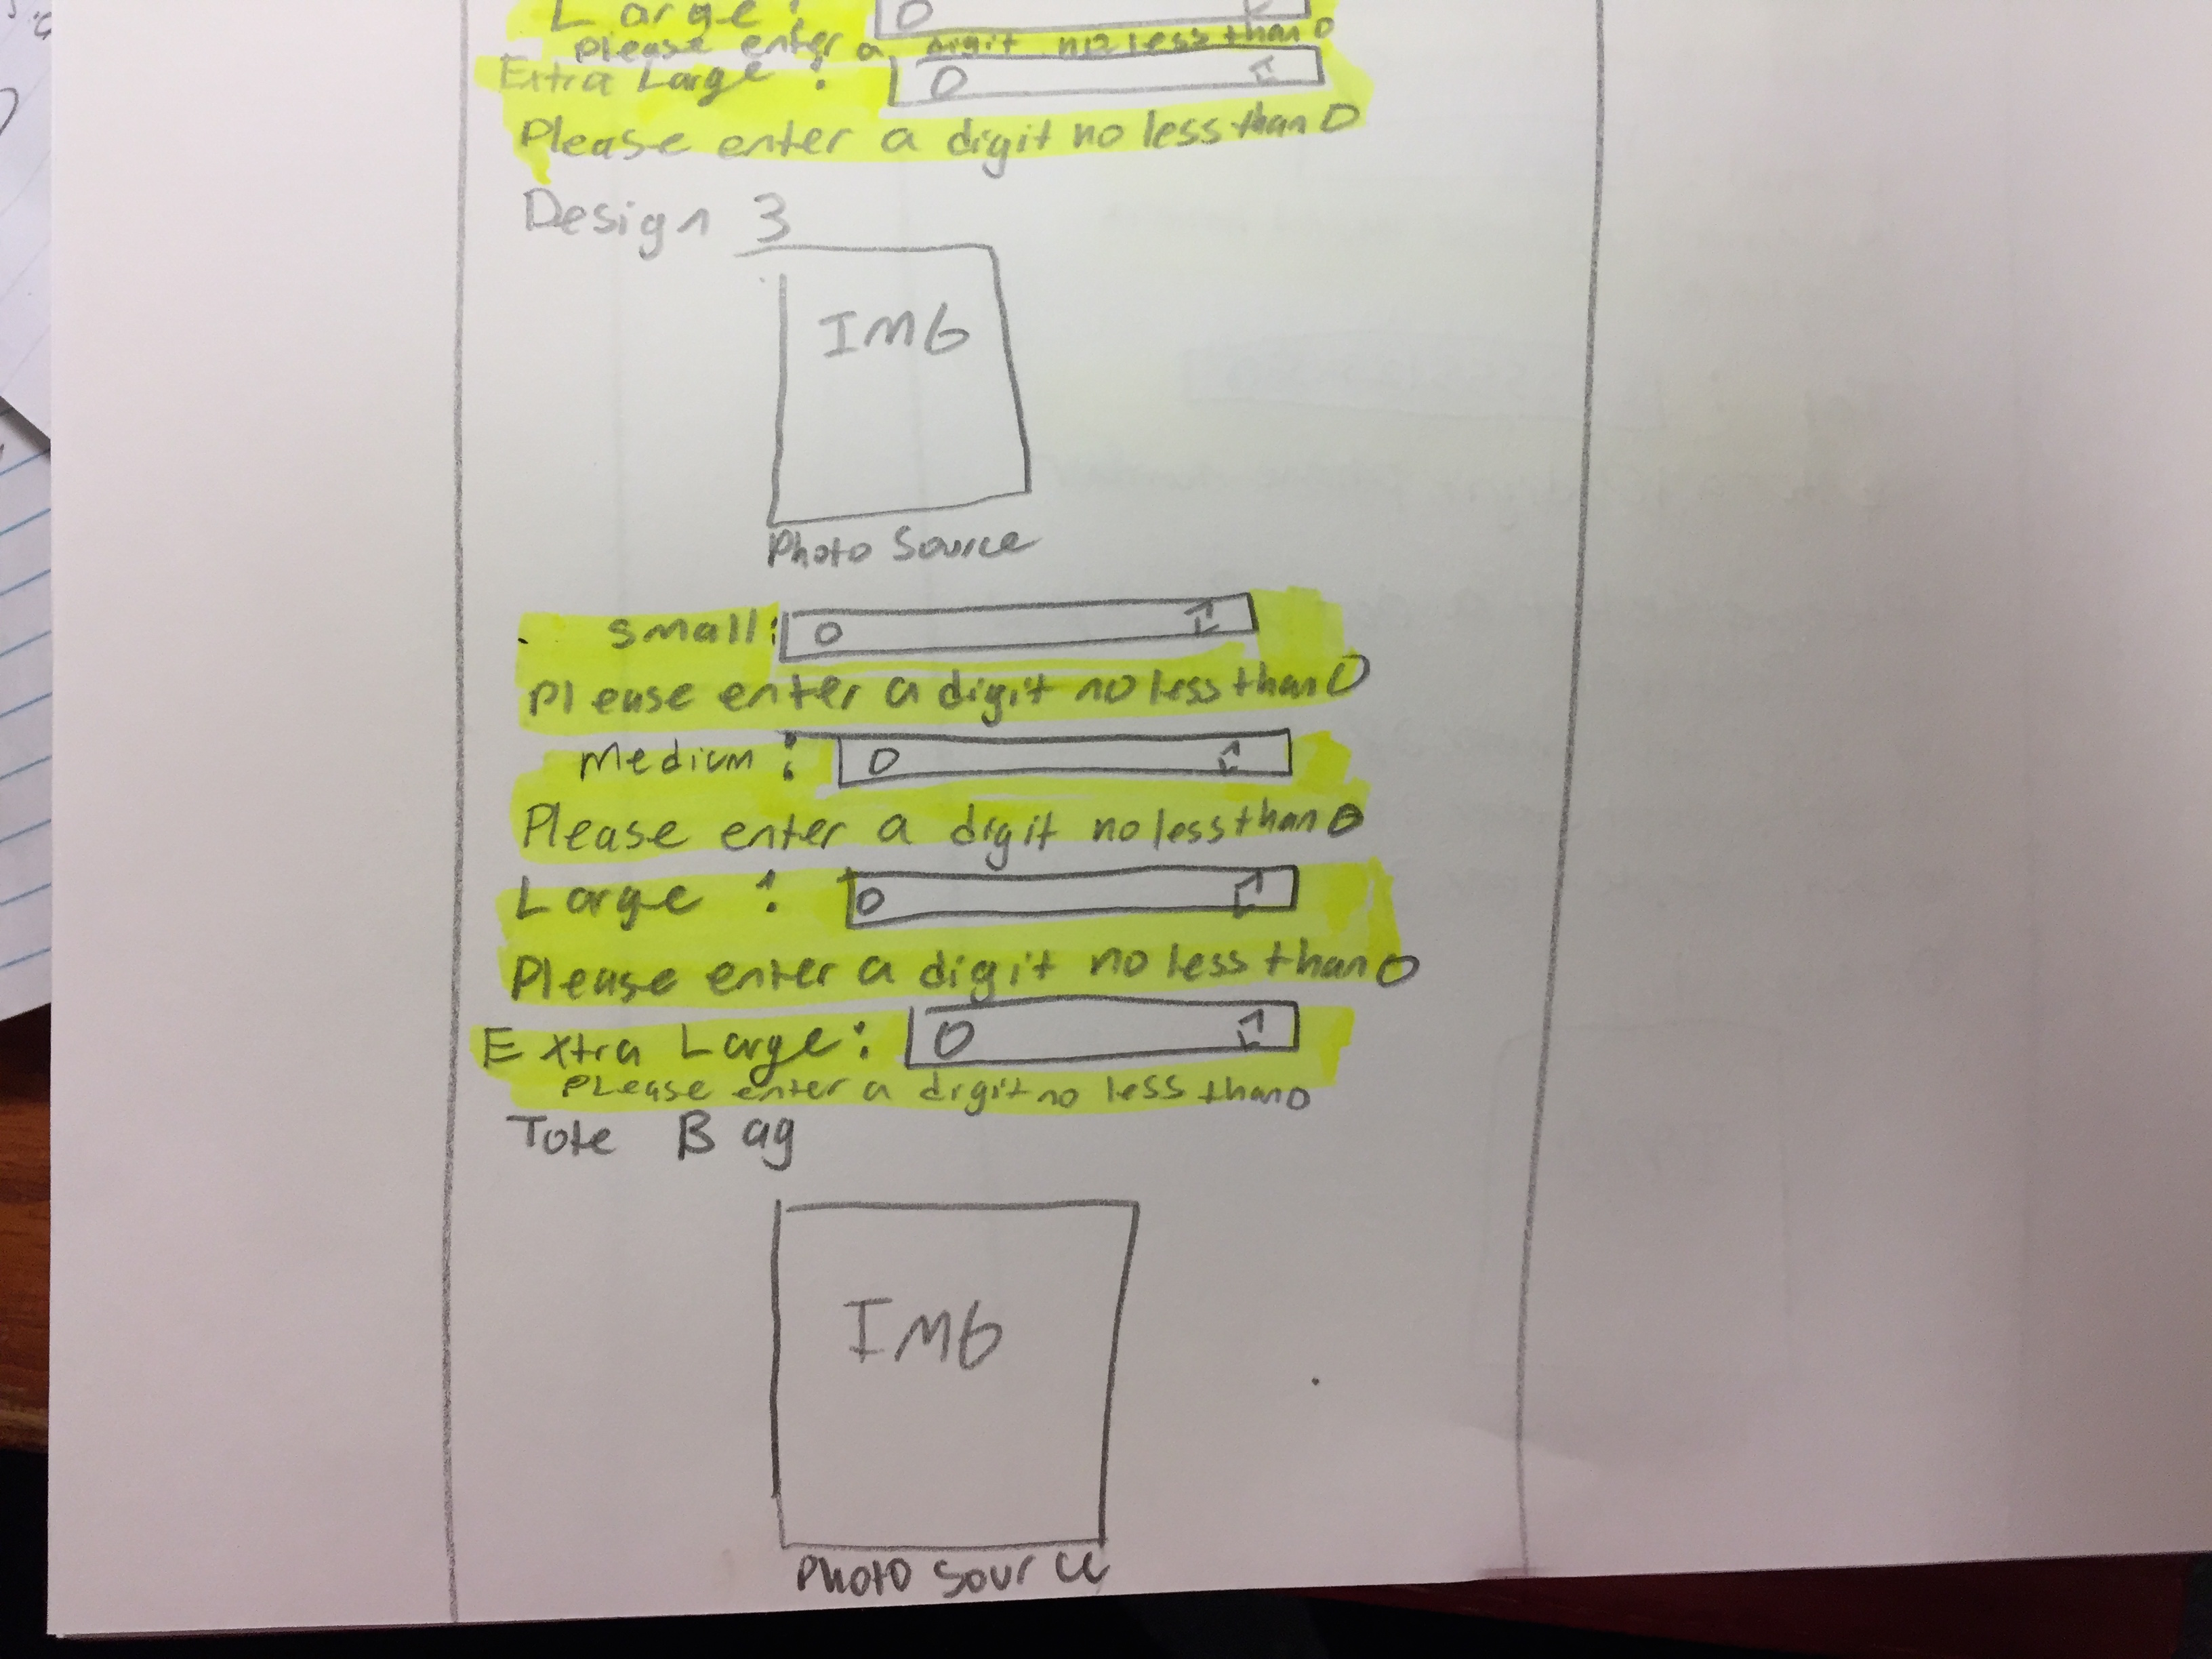 Large: 0
Please enter a digit no less than 0
Extra Large: 0
Please enter a digit no less than 0
Design 3
IMG
Photo Source
Small: 0
Please enter a digit no less than 0
Medium: 0
Please enter a digit no less than 0
Large: 0
Please enter a digit no less than 0
Extra Large: 0
PLease enter a digit no less than 0
Tote Bag
IMG
Photo Source